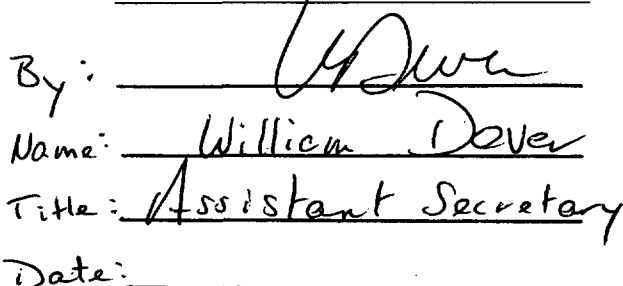 By:
Name: William Dever
Title: Assistant Secretary
Date: